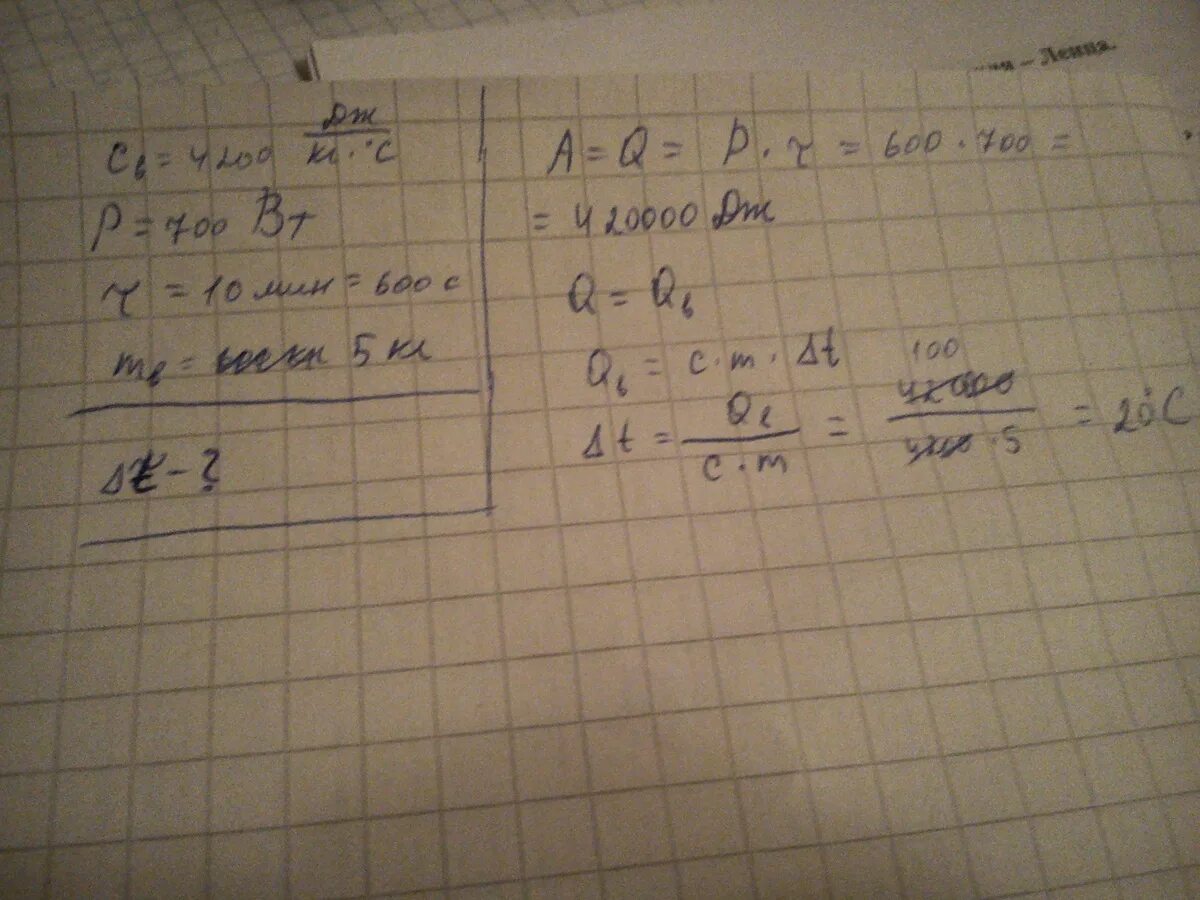 – Ленца.
Cв = 4200 Дж/кг·°C
P = 700 Вт
τ = 10 мин = 600 с
mв = 5 кг
Δt – ?
A = Q = P · τ = 600 · 700 =
= 420000 Дж
Q = Qв
Qв = c · m · Δt
Δt = Qв/c · m = 100 420000/4200 · 5 = 20°C